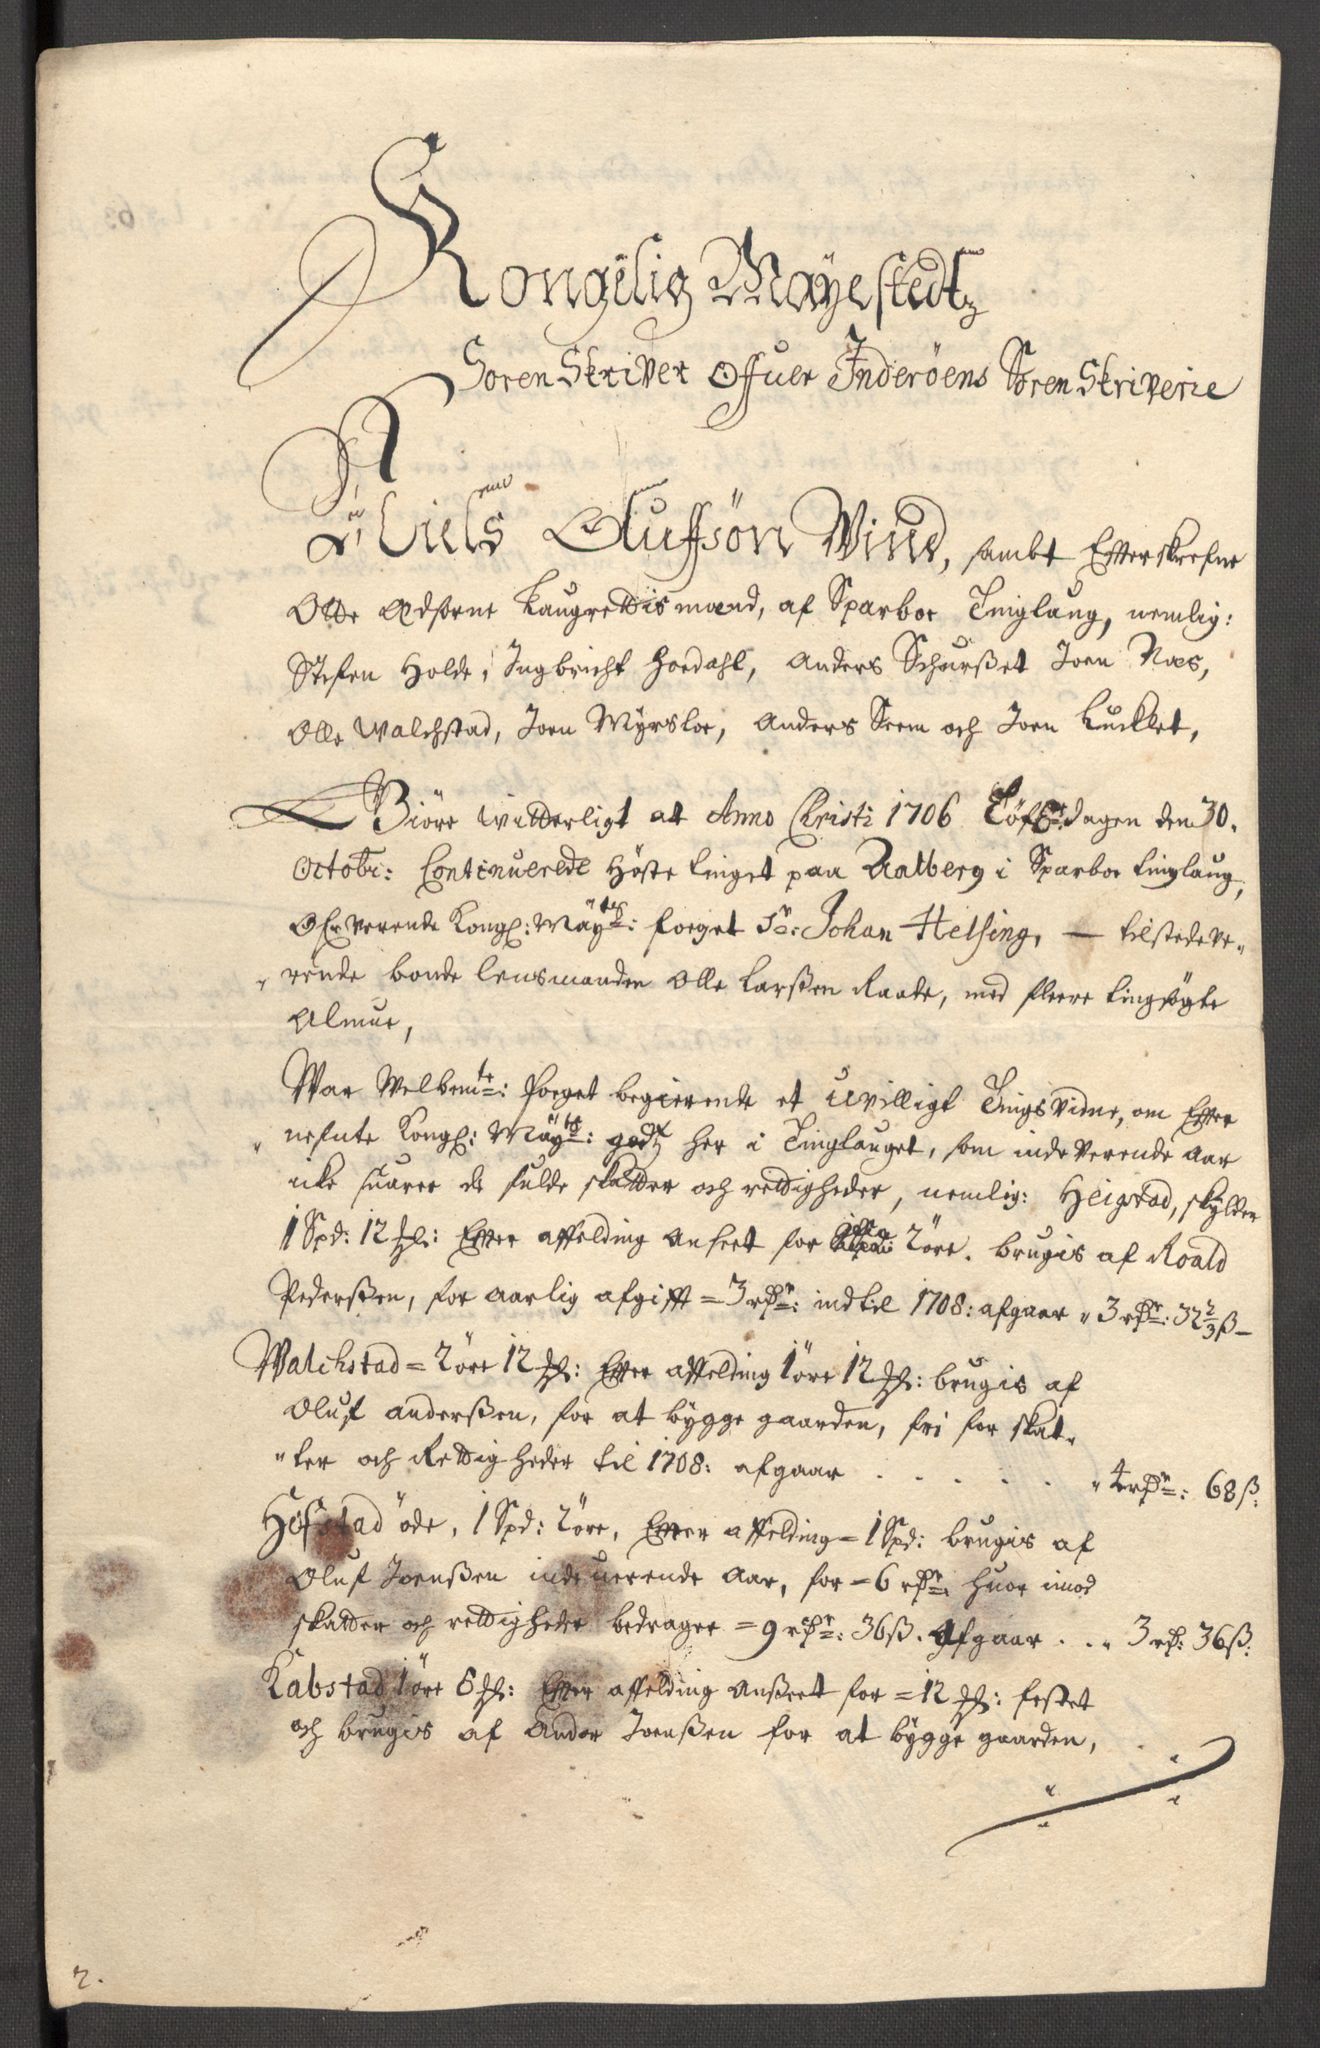 Kongelig Mayestedtz
Soren Skriver offuer Inderöens Soren Skriverie
Niels Oluffsön Vind, sambt Effterskrefne
Otte Edsorne Laugrettis mænd, af Sparboe Tinglaug, nemlig:
Stefen Holde, Ingbricht Hoedahl, Anders Schurßet Joen Næs,
Olle Walchstad, Joen Myrsloe, Anders Seem och Joen Lucklet,
Giöre Witterligt at Anno Christi 1706 Löf&shy;dagen den 30.
Octobr: Continuerede Höste tinget paa Aalberg i Sparboe tinglaug,
Ofververende Kongl: Mayts: foeget Sr: Johan Helsing, — tilstedeve„
„rende bonde lensmanden Olle Larßen Raade, med fleere tingsögte
Almue,
War Welbemte: foeget begierende et uvilligt Tings vidne, om Effter
„nefnte Kongl: Mayts: godtz her i Tinglauget, som inde Verende Aar
icke suarer de fulde skatter och rettigheder, nemlig: Heigstad, skylder
1 Spd: 12 Ml: Effter affelding anseet for 2 öre. brugis af Roald
Pederßen, for aarlig afgifft = 3 rdr: indtil 1708: afgaar „ 3 rdr: 32 2/3 ß —
Walchstad = 2 öre 12 Ml: Effter affelding 1 öre 12 Ml: brugis af
Oluf anderßen, for at bygge gaarden, fri for skat„
„ter och Rettigheder til 1708: afgaar . . . . . . „ 4 rdr: 68 ß:
Hofstad öde, 1 Spd: 2 öre, Effter affelding = 1 Spd: brugis af
Oluf Joenßen indeuerende Aar, for = 6 rdr: huor imod
skatter och rettigheder bedrager = 9 rdr: 36 ß. Afgaar . . „ 3 rd: 36 ß:
Kabstad 1 öre 6 Ml: Effter affelding anßeet for = 12 Ml: festet
och brugis af Ander Joenßen for at bygge gaarden,
2.